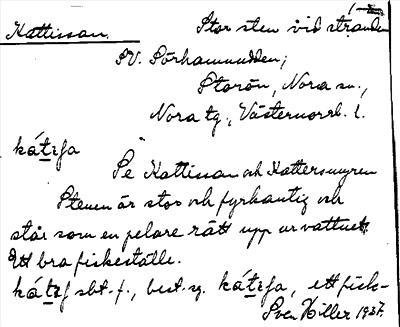 Kattissan. Stor sten vid stranden
SV. Sörhamnudden;
Storön, Nora sn.,
Nora tg., Västernorrl. l.
kát̲ɛsa
Se Kattissan och Kattersmyren
Stenen är stor och fyrkantig och
står som en pelare rätt upp ur vattnet.
Ett bra fiskeställe.
sbt. f., best. sg. ett fisk-
Sven Hiller 1937.